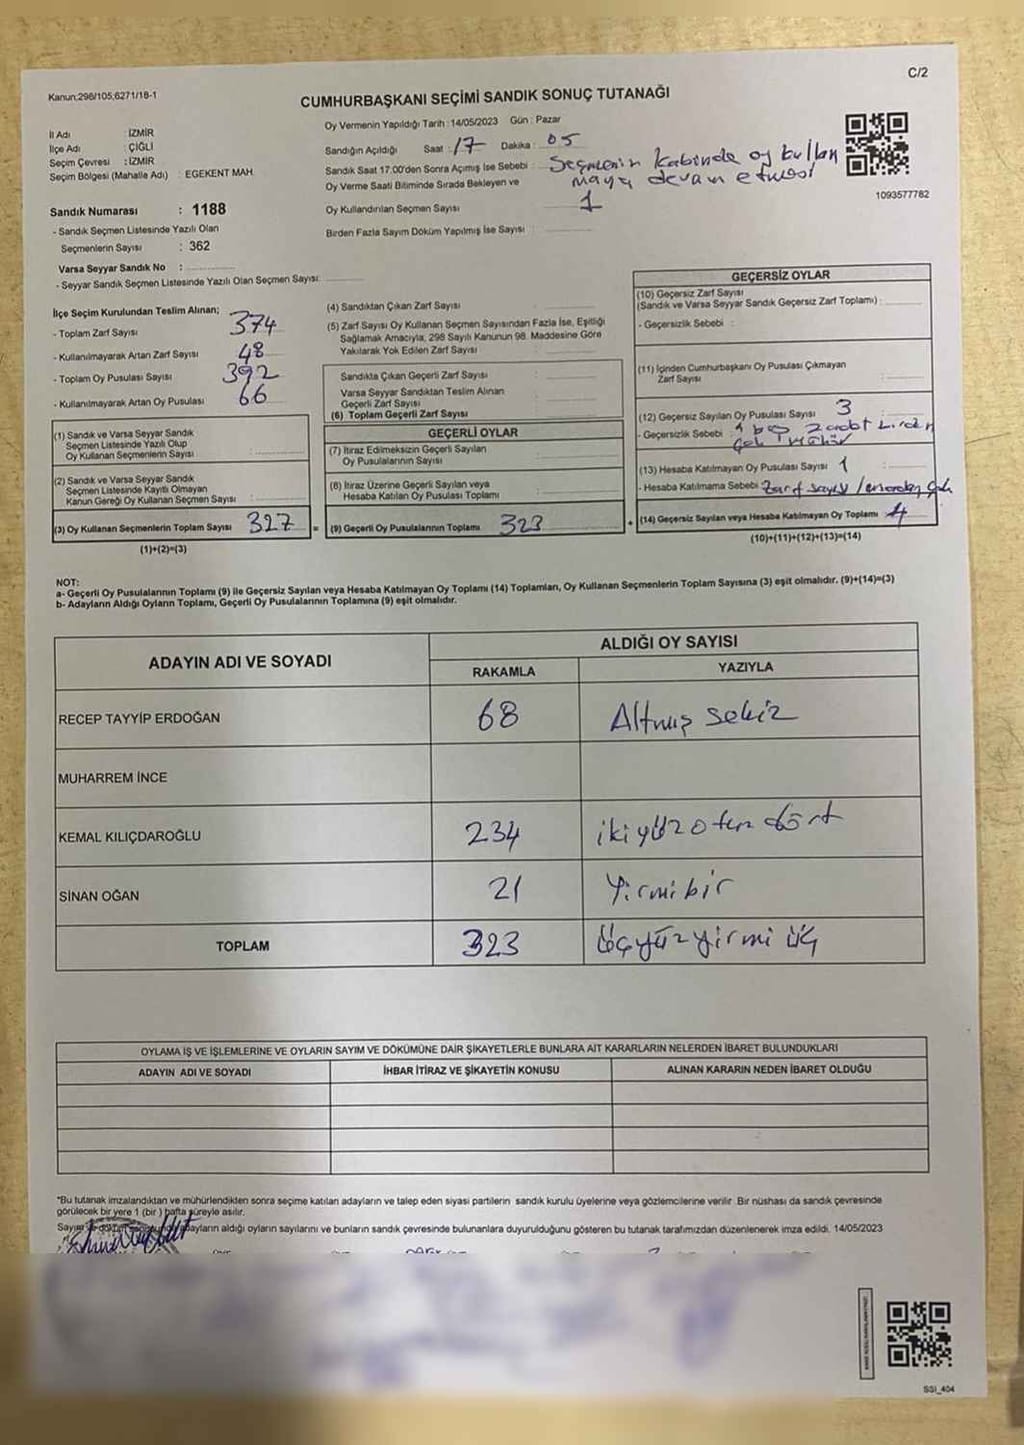 C/2
Kanun:298/105,6271/18-1
CUMHURBAŞKANI SEÇİMİ SANDIK SONUÇ TUTANAĞI
İl Adı : İZMİR
İlçe Adı : ÇİĞLİ
Seçim Çevresi : İZMİR
Seçim Bölgesi (Mahalle Adı) : EGEKENT MAH.
Sandık Numarası : 1188
- Sandık Seçmen Listesinde Yazılı Olan
Seçmenlerin Sayısı : 362
Varsa Seyyar Sandık No :
- Seyyar Sandık Seçmen Listesinde Yazılı Olan Seçmen Sayısı:
Oy Vermenin Yapıldığı Tarih : 14/05/2023 Gün : Pazar
Sandığın Açıldığı Saat : 17 Dakika : 05
Sandık Saat 17.00'den Sonra Açımış İse Sebebi : Seçmenin kabinde oy kullan
Oy Verme Saati Bitiminde Sırada Bekleyen ve maya devam etmesi
Oy Kullandırılan Seçmen Sayısı 1
Birden Fazla Sayım Döküm Yapılmış İse Sayısı :
1093577782
İlçe Seçim Kurulundan Teslim Alınan;
- Toplam Zarf Sayısı 374
- Kullanılmayarak Artan Zarf Sayısı 48
- Toplam Oy Pusulası Sayısı 392
- Kullanılmayarak Artan Oy Pusulası 66
(1) Sandık ve Varsa Seyyar Sandık
Seçmen Listesinde Yazılı Olup
Oy Kullanan Seçmenlerin Sayısı :
(2) Sandık ve Varsa Seyyar Sandık
Seçmen Listesinde Kayıtlı Olmayan
Kanun Gereği Oy Kullanan Seçmen Sayısı :
(3) Oy Kullanan Seçmenlerin Toplam Sayısı 327 =
(1)+(2)=(3)
(4) Sandıktan Çıkan Zarf Sayısı
(5) Zarf Sayısı Oy Kullanan Seçmen Sayısından Fazla İse, Eşitliği
Sağlamak Amacıyla, 298 Sayılı Kanunun 98. Maddesine Göre
Yakılarak Yok Edilen Zarf Sayısı
Sandıkta Çıkan Geçerli Zarf Sayısı :
Varsa Seyyar Sandıktan Teslim Alınan
Geçerli Zarf Sayısı :
(6) Toplam Geçerli Zarf Sayısı
GEÇERLİ OYLAR
(7) İtiraz Edilmeksizin Geçerli Sayılan
Oy Pusulalarının Sayısı :
(8) İtiraz Üzerine Geçerli Sayılan veya
Hesaba Katılan Oy Pusulası Toplamı :
(9) Geçerli Oy Pusulalarının Toplamı 323 +
GEÇERSİZ OYLAR
(10) Geçersiz Zarf Sayısı
(Sandık ve Varsa Seyyar Sandık Geçersiz Zarf Toplamı) :
- Geçersizlik Sebebi :
(11) İçinden Cumhurbaşkanı Oy Pusulası Çıkmayan
Zarf Sayısı :
(12) Geçersiz Sayılan Oy Pusulası Sayısı 3
- Geçersizlik Sebebi : 1 boş 2 adet birden
çok mühür
(13) Hesaba Katılmayan Oy Pusulası Sayısı : 1
- Hesaba Katılmama Sebebi : Zarf sayısı
(14) Geçersiz Sayılan veya Hesaba Katılmayan Oy Toplamı 4
(10)+(11)+(12)+(13)=(14)
NOT:
a- Geçerli Oy Pusulalarının Toplamı (9) ile Geçersiz Sayılan veya Hesaba Katılmayan Oy Toplamı (14) Toplamları, Oy Kullanan Seçmenlerin Toplam Sayısına (3) eşit olmalıdır. (9)+(14)=(3)
b- Adayların Aldığı Oyların Toplamı, Geçerli Oy Pusulalarının Toplamına (9) eşit olmalıdır.
ADAYIN ADI VE SOYADI
ALDIĞI OY SAYISI
RAKAMLA YAZIYLA
RECEP TAYYİP ERDOĞAN 68 Altmış sekiz
MUHARREM İNCE
KEMAL KILIÇDAROĞLU 234 iki yüz otuz dört
SİNAN OĞAN 21 Yirmi bir
TOPLAM 323 Üçyüz yirmi üç
OYLAMA İŞ VE İŞLEMLERİNE VE OYLARIN SAYIM VE DÖKÜMÜNE DAİR ŞİKAYETLERLE BUNLARA AİT KARARLARIN NELERDEN İBARET BULUNDUKLARI
ADAYIN ADI VE SOYADI İHBAR İTİRAZ VE ŞİKAYETİN KONUSU ALINAN KARARIN NEDEN İBARET OLDUĞU
*Bu tutanak imzalandıktan ve mühürlendikten sonra seçime katılan adayların ve talep eden siyasi partilerin sandık kurulu üyelerine veya gözlemcilerine verilir. Bir nüshası da sandık çevresinde
görülecek bir yere 1 (bir) hafta süreyle asılır.
Sayım adayların aldığı oyların sayılarını ve bunların sandık çevresinde bulunanlara duyurulduğunu gösteren bu tutanak tarafımızdan düzenlenerek imza edildi. 14/05/2023
SSI_404